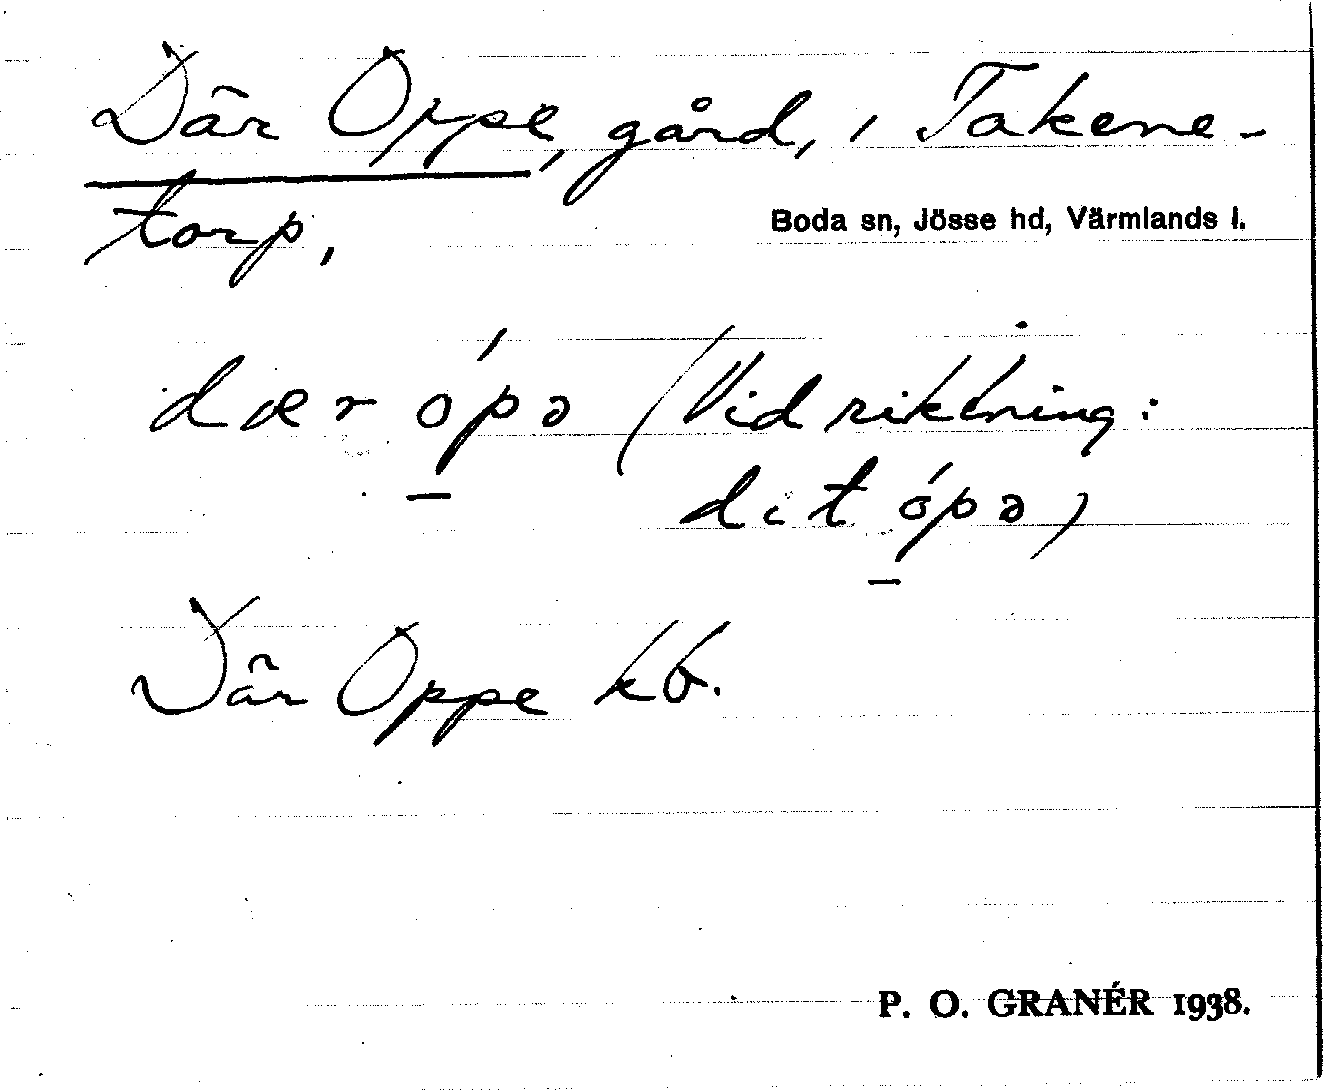 Där Oppe, gård, i Takene-
torp,
Boda sn, Jösse hd, Värmlands l.
dær ópə (Vid riktning:
dit ópə)
Där Oppe kb.
P. O. GRANÉR 1938.